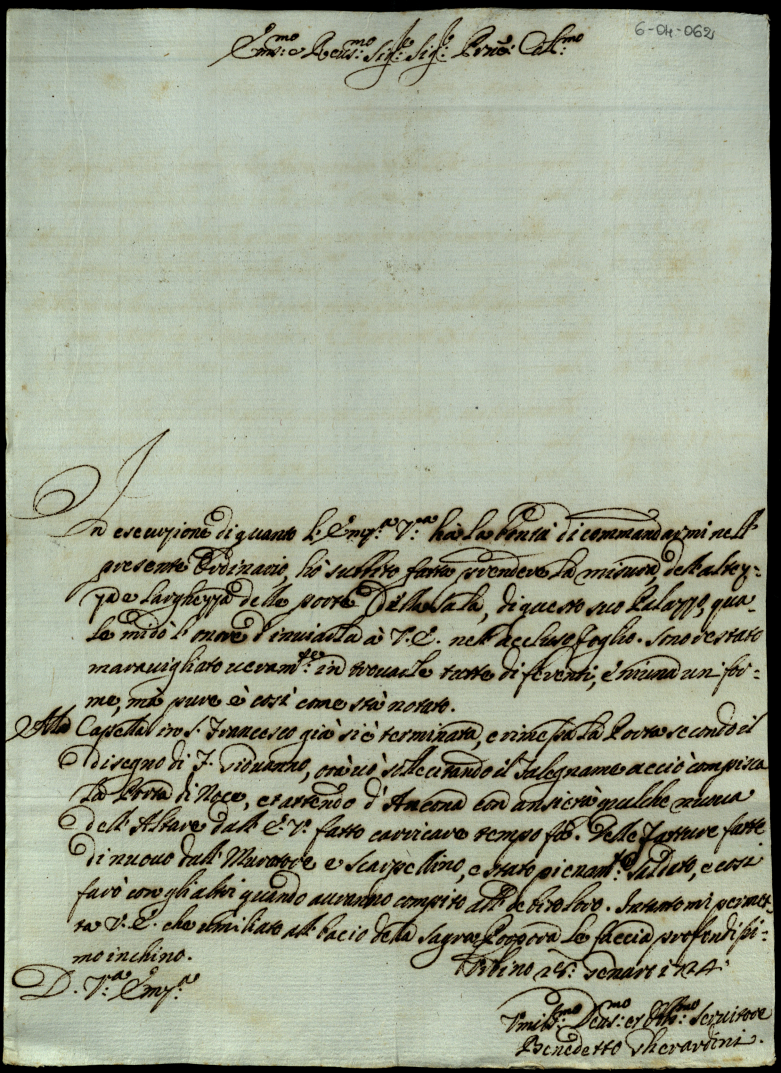 6-04-062
Em.mo e Reu.mo Sig.re Sig.re Prōn: Col.mo
In esecuzione di quanto l'Em.za V.ra hà la bontà di commandarmi nell'
presente Ordinario, hò subbito fatto prendere la misura, dell'altez-
za e larghezza delle porte della sala, di questo suo Palazzo, qua-
le mi dò l'onore d'inviarla à V.E. nell'accluso foglio. Sono restato
maravigliato ueram.te in trouarle tutte diferenti, e niuna unifor-
me, mà pure è così come stà notato.
Alla Cappella in S. Francesco già si è terminata, e rimessa la Porta secondo il
disegno di F. Giouanno, ora uò sollecitando il Falegname acciò compisca
la Porta di Noce, et attendo d'Ancona con ansietà qualche nuoua
dell'Altare dall'E.V. fatto carricare tempo fà. Delle fatture fatte
di nuovo dall'Muratore e Scarpellino, e stato pienam.te saldato, e così
farò con gli altri quando auranno compito all'debito loro. Intanto mi permet-
ta V.E. che umiliato all'bacio della Sagra Porpora le faccia profondissi-
mo inchino.
Urbino 28 Genaro 1724
D. V.ra Em.za
Vmilis.mo Deuo.mo et Obl.mo Seruitore
Benedetto Gherardini.